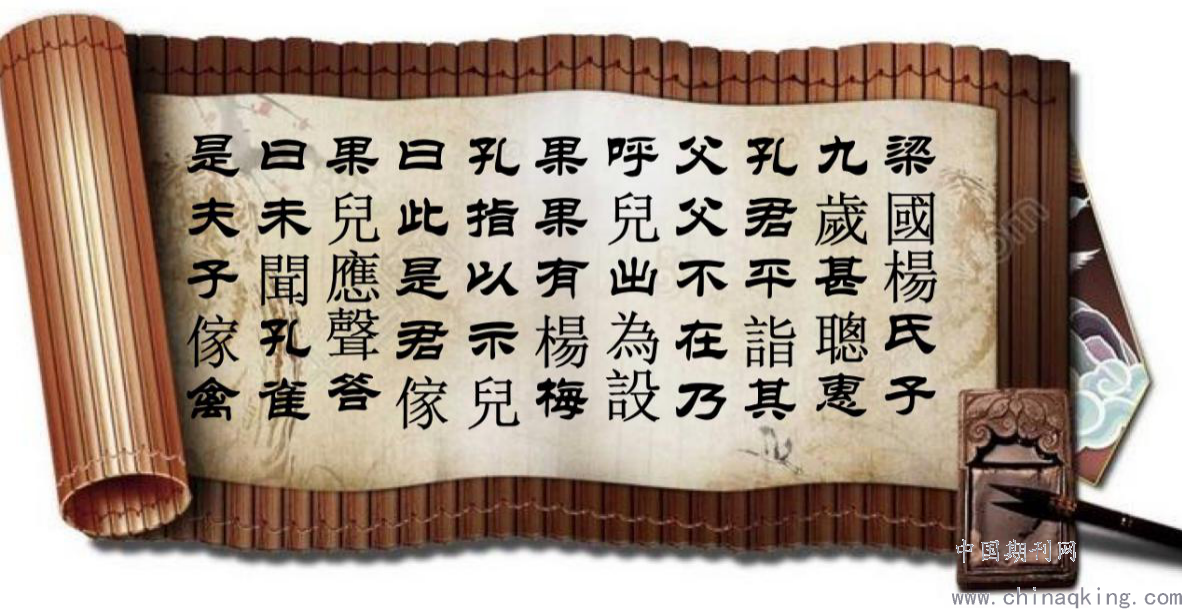 梁國楊氏子
九歲甚聰惠
孔君平詣其
父父不在乃
呼兒出為設
果果有楊梅
孔指以示兒
曰此是君傢
果兒應聲答
曰未聞孔雀
是夫子傢禽
中国期刊网
www.chinaqking.com